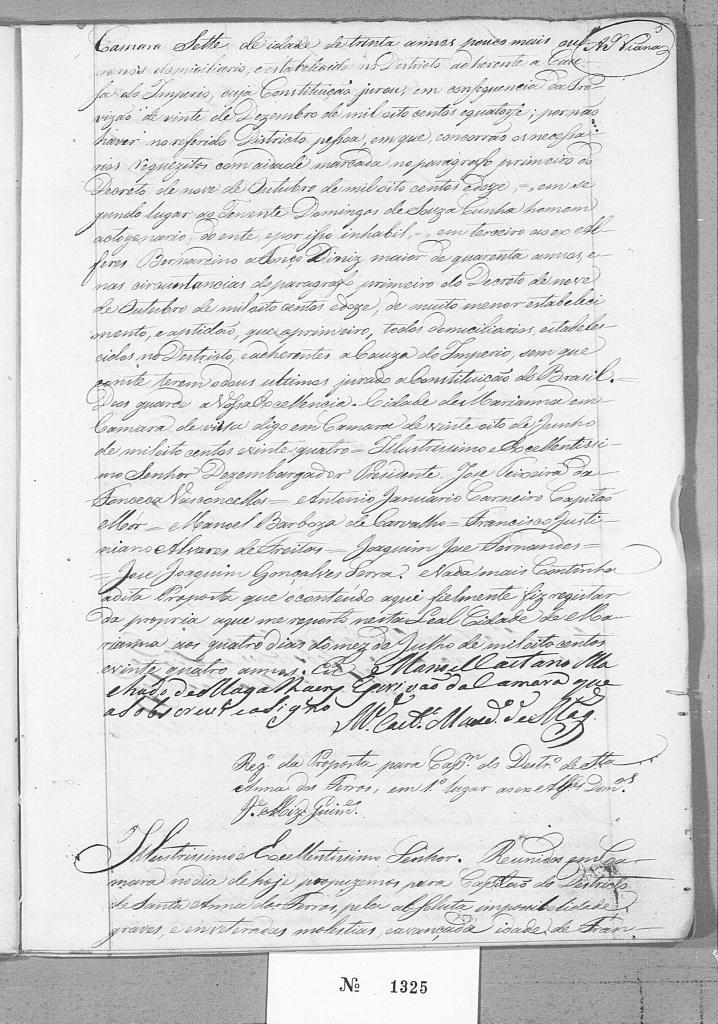 Camara Sette de idade de trinta annos pouco mais ou
Az.do Viana
menos domiciliario, e estabelicido no Destricto adherente a Cau-
sa do Imperio, cuja Constituição jurou, em consequencia da Pro-
vizaõ de vinte de Dezembro de mil oito centos equatorze; por não
haver no referido Districto pessoa, em que, concorrão os necessa-
rios requezitos com aidade marcada no paragrafo primeiro do
Decreto, de nove de Outubro de mil oito centos edoze, =, em se
gundo lugar ao Tenente Domingos de Souza Cunha homem
actogenario, doente, epor isso inhabil, = em terceiro ao ex Al-
feres Bernardino Diniz maior de quarenta annos, e
nas circunstancias do paragrafo primeiro do Decreto de nove
de Outubro de mil oito centos edoze, de muito menor estabeleci
mento, e aptidaõ, que o primeiro, todos domiciliarios, estabele-
cidos no Destricto, eadherentes a Cauza do Imperio, sem que
conste terem odous ultimos jurado a Constituição do Brasil. =
Deos guarde a Vossa Excellencia. Cidade de Marianna em
Camara de vista digo em Camara de vinte oito de Junho
de mil oito centos evinte quatro = Illustrissimo e Excellentissi-
mo Senhor Dezembargador Presidente, Jose Teixeira da
Fonceca Vasconcellos = Antonio Januario Carneiro Capitão
Mór = Manoel Barboza de Carvalho = Francisco Justi-
niano Alvares de Freitas = Joaquim Jose Fernandes =
= Jose Joaquim Gonçalves Serra. eNada mais Continha
adita Proposta que ocontendo aqui fielmente fiz registar
da propria aque me reporto nesta Leal Cidade de Ma-
rianna aos quatro dias do mez de Julho de mil oito centos
evinte quatro annos. Eu Manoel Caetano Ma
chado de Magalhaens Escrivaõ da Camara que
a sobscrevi e asigno
M.el Caet.o Maxd.o de Mag.
Reg.o da Proposta para Cap.m do Destr.o de S.ta
Anna dos Ferros, em 1.o lugar ao ex Alf.es Dom.os
J.e Guim.es
Illustrissimo e Excellentissimo Senhor. Reunidos em Ca-
mara no dia de hoje propuzemos para Capitaõ do Destricto
de Santa Anna dos Ferros, pela absoluta impossibelidade,
graves, e enveteradas molestias, eavançada idade, de Fran-
No 1325